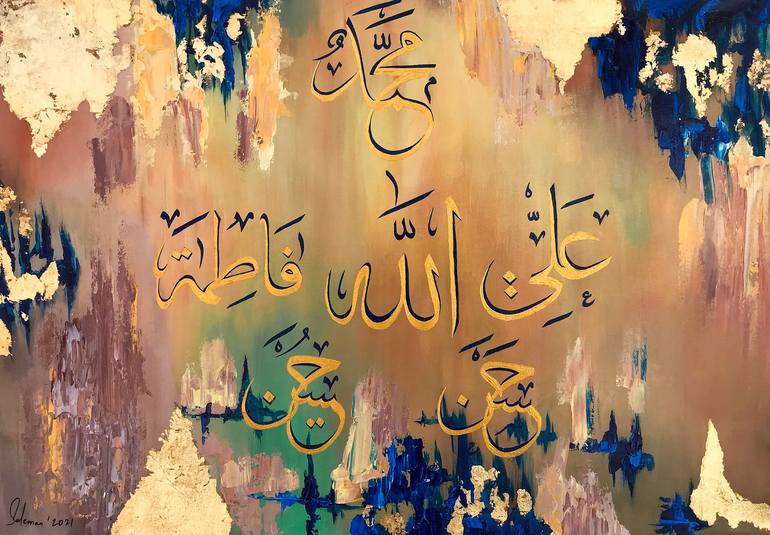 مُحَمَّدٌ
عَلَيِّ اللّٰه فَاطِمَة
حَسَن حُسَيْن
Suleman '2021